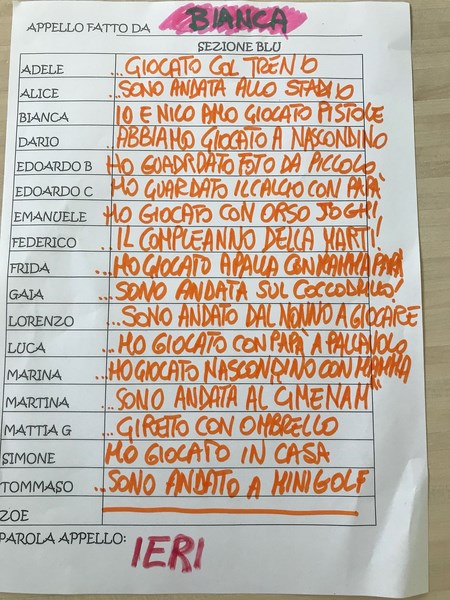 APPELLO FATTO DA BIANCA
SEZIONE BLU
ADELE ...GIOCATO COL TRENO
ALICE ...SONO ANDATA ALLO STADIO
BIANCA IO E NICO AMO GIOCATO PISTOLE
DARIO ..ABBIAMO GIOCATO A NASCONDINO
EDOARDO B HO GUARDATO FOTO DA PICCOLO
EDOARDO C HO GUARDATO IL CALCIO CON PAPÀ
EMANUELE HO GIOCATO CON ORSO JOGHI
FEDERICO .. IL COMPLEANNO DELLA MARTI!
FRIDA ...HO GIOCATO A PALLA CON MAMMA PAPÀ
GAIA ...SONO ANDATA SUL COCCODRILLO!
LORENZO ...SONO ANDATO DAL NONNO A GIOCARE
LUCA ...HO GIOCATO CON PAPÀ A PALLAVOLO
MARINA ...HO GIOCATO NASCONDINO CON MAMMA
MARTINA ...SONO ANDATA AL CIMENAM"
MATTIA G ...GIRETTO CON OMBRELLO
SIMONE HO GIOCATO IN CASA
TOMMASO ...SONO ANDATO A MINIGOLF
ZOE
PAROLA APPELLO: IERI